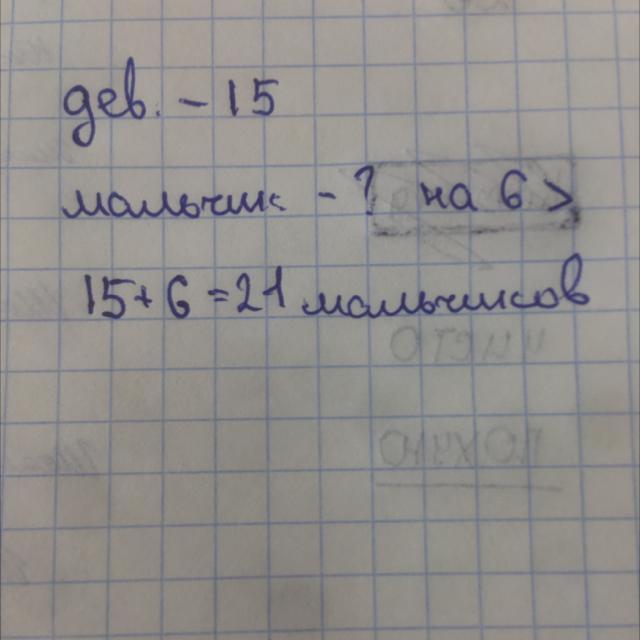 дев. - 15
мальчик - ? на 6 >
15 + 6 = 21 мальчиков